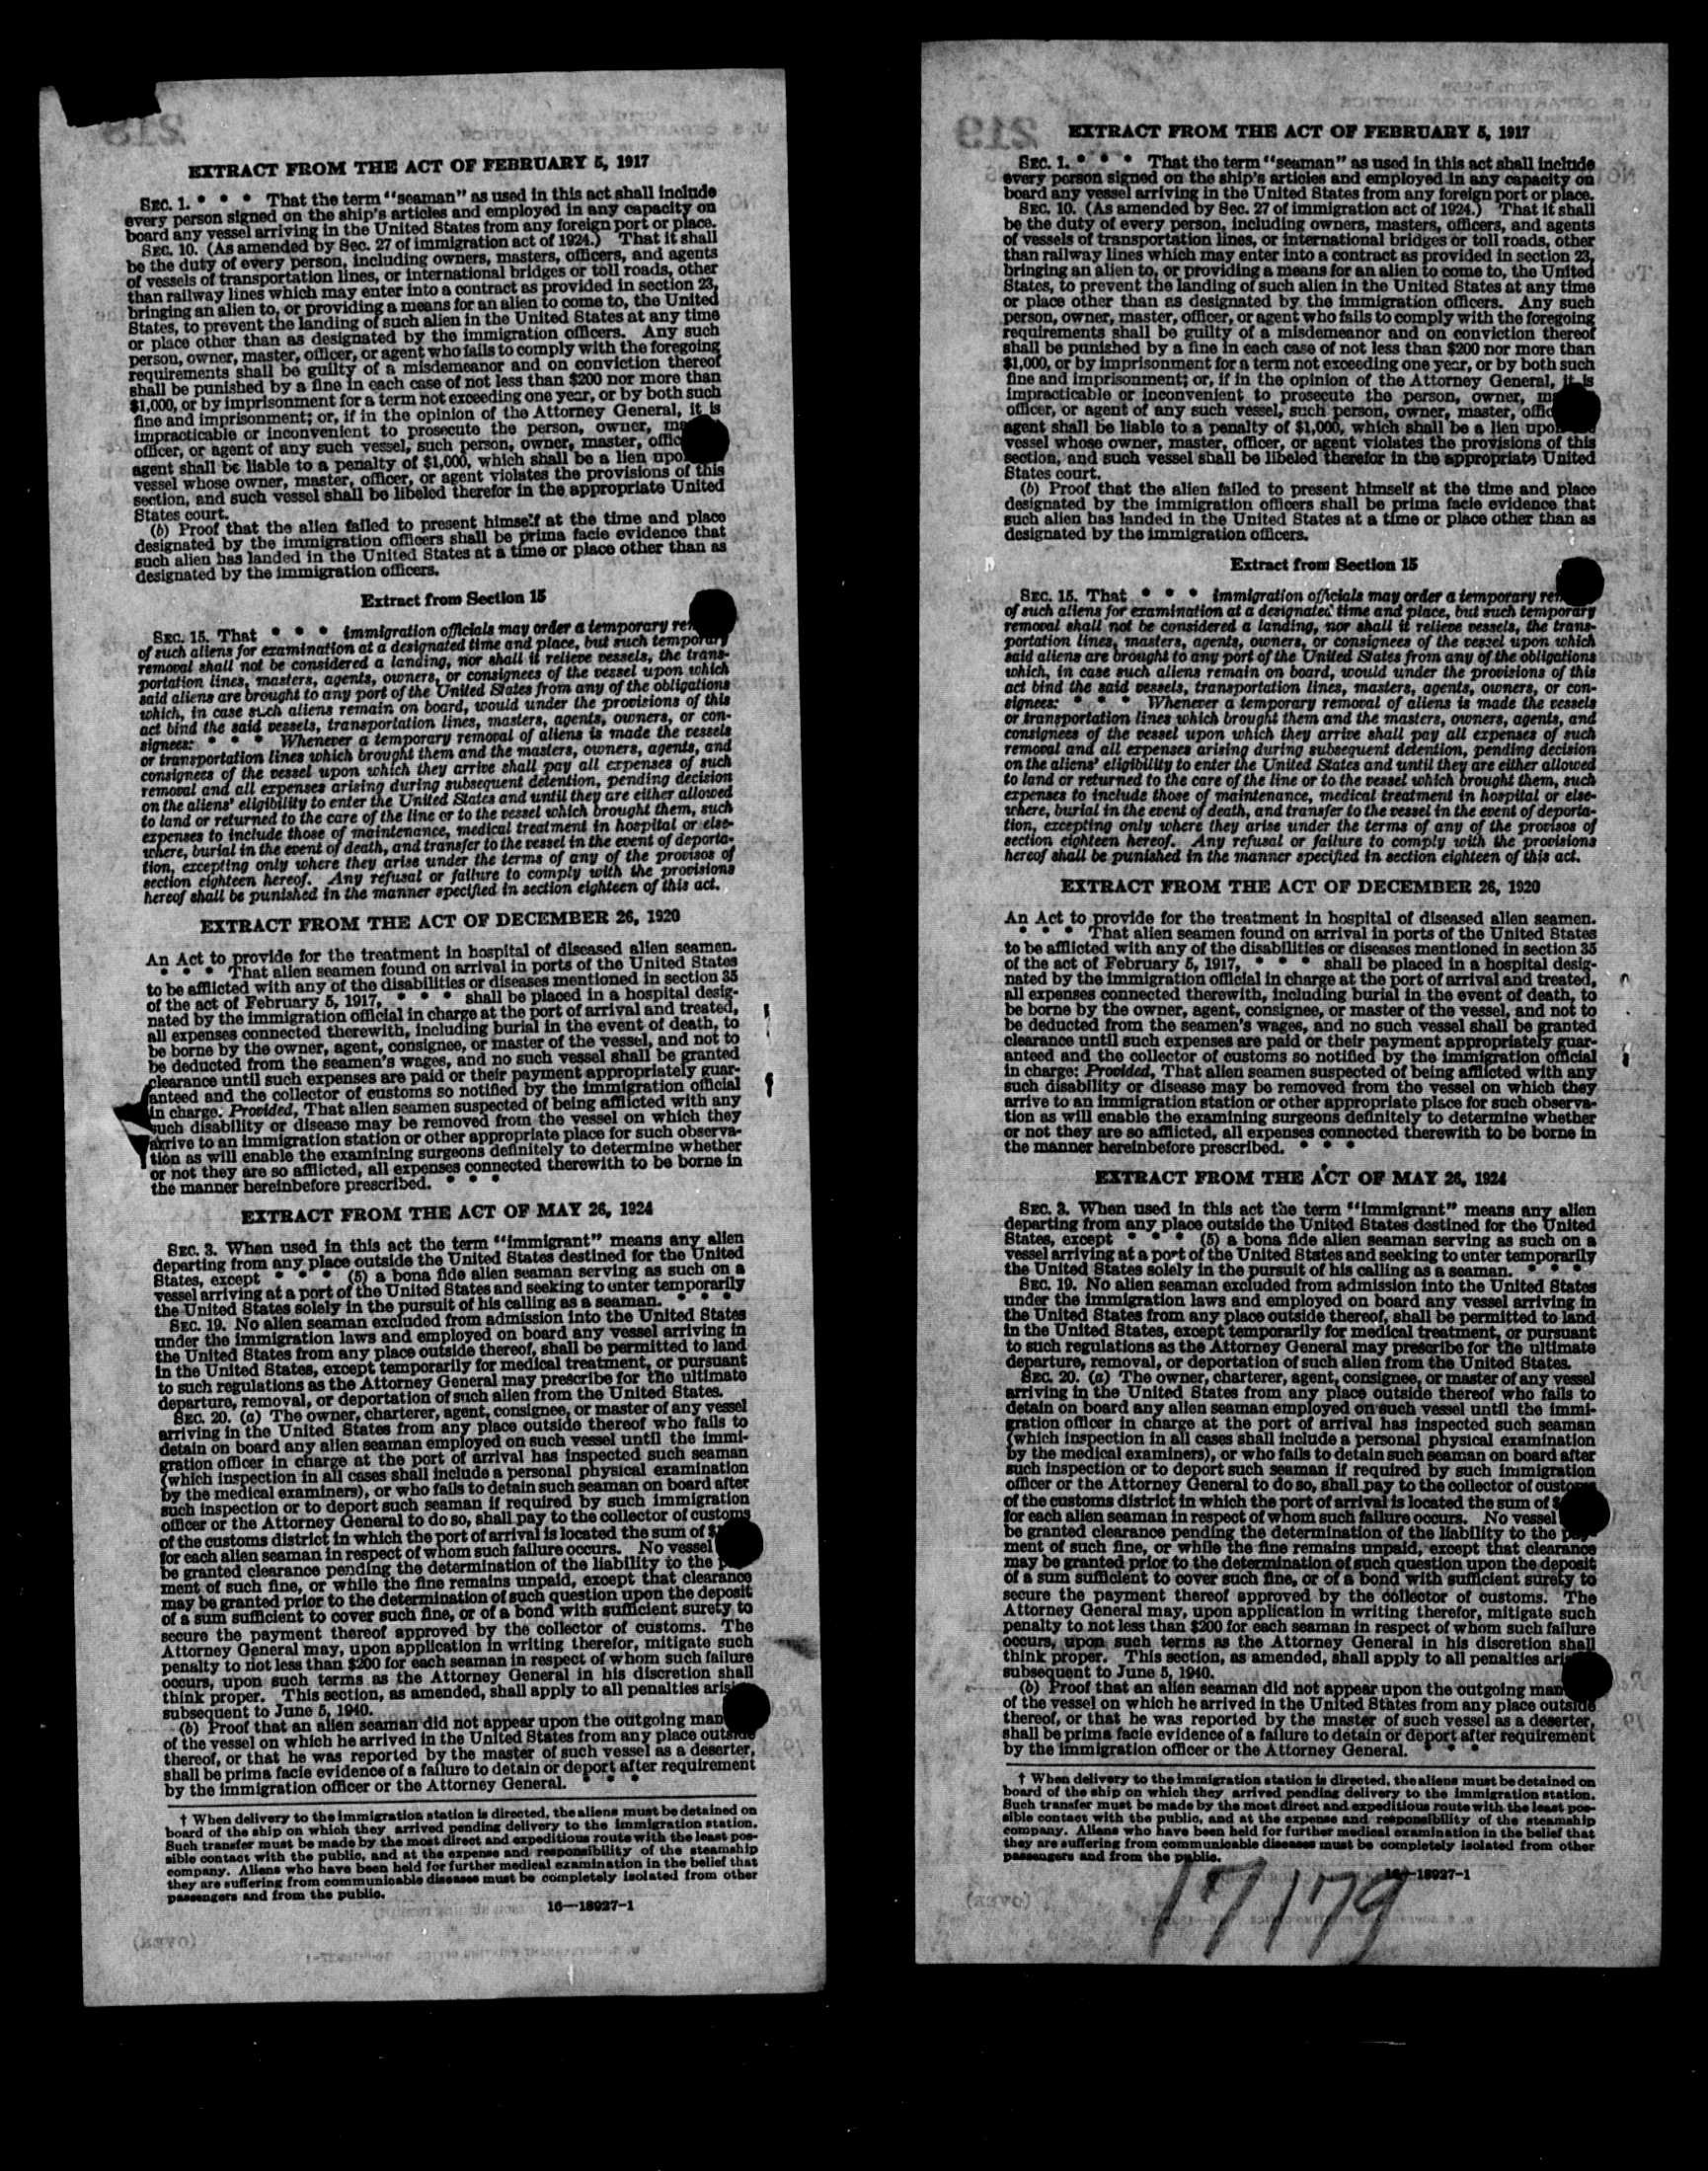 EXTRACT FROM THE ACT OF FEBRUARY 5, 1917
SEC. 1. * * * That the term "seaman" as used in this act shall include
every person signed on the ship's articles and employed in any capacity on
board any vessel arriving in the United States from any foreign port or place.
SEC. 10. (As amended by Sec. 27 of immigration act of 1924.) That it shall
be the duty of every person, including owners, masters, officers, and agents
of vessels of transportation lines, or international bridges or toll roads, other
than railway lines which may enter into a contract as provided in section 23,
bringing an alien to, or providing a means for an alien to come to, the United
States, to prevent the landing of such alien in the United States at any time
or place other than as designated by the immigration officers. Any such
person, owner, master, officer, or agent who fails to comply with the foregoing
requirements shall be guilty of a misdemeanor and on conviction thereof
shall be punished by a fine in each case of not less than $200 nor more than
$1,000, or by imprisonment for a term not exceeding one year, or by both such
fine and imprisonment; or, if in the opinion of the Attorney General, it is
impracticable or inconvenient to prosecute the person, owner,
officer, or agent of any such vessel, such person, owner, master,
agent shall be liable to a penalty of $1,000, which shall be a lien
vessel whose owner, master, officer, or agent violates the provisions of this
section, and such vessel shall be libeled therefor in the appropriate United
States court.
(b) Proof that the alien failed to present himself at the time and place
designated by the immigration officers shall be prima facie evidence that
such alien has landed in the United States at a time or place other than as
designated by the immigration officers.
Extract from Section 15
SEC. 15. That * * * immigration officials may order a temporary
of such aliens for examination at a designated time and place, but such temporary
removal shall not be considered a landing, nor shall it relieve vessels, the trans-
portation lines, masters, agents, owners, or consignees of the vessel upon which
said aliens are brought to any port of the United States from any of the obligations
which, in case such aliens remain on board, would under the provisions of this
act bind the said vessels, transportation lines, masters, agents, owners, or con-
signees: * * * Whenever a temporary removal of aliens is made the vessels
or transportation lines which brought them and the masters, owners, agents, and
consignees of the vessel upon which they arrive shall pay all expenses of such
removal and all expenses arising during subsequent detention, pending decision
on the aliens' eligibility to enter the United States and until they are either allowed
to land or returned to the care of the line or to the vessel which brought them, such
expenses to include those of maintenance, medical treatment in hospital or else-
where, burial in the event of death, and transfer to the vessel in the event of deporta-
tion, excepting only where they arise under the terms of any of the provisos of
section eighteen hereof. Any refusal or failure to comply with the provisions
hereof shall be punished in the manner specified in section eighteen of this act.
EXTRACT FROM THE ACT OF DECEMBER 26, 1920
An Act to provide for the treatment in hospital of diseased alien seamen.
* * * That alien seamen found on arrival in ports of the United States
to be afflicted with any of the disabilities or diseases mentioned in section 35
of the act of February 5, 1917, * * * shall be placed in a hospital desig-
nated by the immigration official in charge at the port of arrival and treated,
all expenses connected therewith, including burial in the event of death, to
be borne by the owner, agent, consignee, or master of the vessel, and not to
be deducted from the seamen's wages, and no such vessel shall be granted
clearance until such expenses are paid or their payment appropriately guar-
anteed and the collector of customs so notified by the immigration official
in charge: Provided, That alien seamen suspected of being afflicted with any
such disability or disease may be removed from the vessel on which they
arrive to an immigration station or other appropriate place for such observa-
tion as will enable the examining surgeons definitely to determine whether
or not they are so afflicted, all expenses connected therewith to be borne in
the manner hereinbefore prescribed. * * *
EXTRACT FROM THE ACT OF MAY 26, 1924
SEC. 3. When used in this act the term "immigrant" means any alien
departing from any place outside the United States destined for the United
States, except * * * (5) a bona fide alien seaman serving as such on a
vessel arriving at a port of the United States and seeking to enter temporarily
the United States solely in the pursuit of his calling as a seaman. * * *
SEC. 19. No alien seaman excluded from admission into the United States
under the immigration laws and employed on board any vessel arriving in
the United States from any place outside thereof, shall be permitted to land
in the United States, except temporarily for medical treatment, or pursuant
to such regulations as the Attorney General may prescribe for the ultimate
departure, removal, or deportation of such alien from the United States.
SEC. 20. (a) The owner, charterer, agent, consignee, or master of any vessel
arriving in the United States from any place outside thereof who fails to
detain on board any alien seaman employed on such vessel until the immi-
gration officer in charge at the port of arrival has inspected such seaman
(which inspection in all cases shall include a personal physical examination
by the medical examiners), or who fails to detain such seaman on board after
such inspection or to deport such seaman if required by such immigration
officer or the Attorney General to do so, shall pay to the collector of customs
of the customs district in which the port of arrival is located the sum of
for each alien seaman in respect of whom such failure occurs. No vessel
be granted clearance pending the determination of the liability to the
ment of such fine, or while the fine remains unpaid, except that clearance
may be granted prior to the determination of such question upon the deposit
of a sum sufficient to cover such fine, or of a bond with sufficient surety to
secure the payment thereof approved by the collector of customs. The
Attorney General may, upon application in writing therefor, mitigate such
penalty to not less than $200 for each seaman in respect of whom such failure
occurs, upon such terms as the Attorney General in his discretion shall
think proper. This section, as amended, shall apply to all penalties
subsequent to June 5, 1940.
(b) Proof that an alien seaman did not appear upon the outgoing
of the vessel on which he arrived in the United States from any place outside
thereof, or that he was reported by the master of such vessel as a deserter,
shall be prima facie evidence of a failure to detain or deport after requirement
by the immigration officer or the Attorney General. * * *
† When delivery to the immigration station is directed, the aliens must be detained on
board of the ship on which they arrived pending delivery to the immigration station.
Such transfer must be made by the most direct and expeditious route with the least pos-
sible contact with the public, and at the expense and responsibility of the steamship
company. Aliens who have been held for further medical examination in the belief that
they are suffering from communicable diseases must be completely isolated from other
passengers and from the public.
16—18927-1
EXTRACT FROM THE ACT OF FEBRUARY 5, 1917
SEC. 1. * * * That the term "seaman" as used in this act shall include
every person signed on the ship's articles and employed in any capacity on
board any vessel arriving in the United States from any foreign port or place.
SEC. 10. (As amended by Sec. 27 of immigration act of 1924.) That it shall
be the duty of every person, including owners, masters, officers, and agents
of vessels of transportation lines, or international bridges or toll roads, other
than railway lines which may enter into a contract as provided in section 23,
bringing an alien to, or providing a means for an alien to come to, the United
States, to prevent the landing of such alien in the United States at any time
or place other than as designated by the immigration officers. Any such
person, owner, master, officer, or agent who fails to comply with the foregoing
requirements shall be guilty of a misdemeanor and on conviction thereof
shall be punished by a fine in each case of not less than $200 nor more than
$1,000, or by imprisonment for a term not exceeding one year, or by both such
fine and imprisonment; or, if in the opinion of the Attorney General, it is
impracticable or inconvenient to prosecute the person, owner,
officer, or agent of any such vessel, such person, owner, master,
agent shall be liable to a penalty of $1,000, which shall be a lien
vessel whose owner, master, officer, or agent violates the provisions of this
section, and such vessel shall be libeled therefor in the appropriate United
States court.
(b) Proof that the alien failed to present himself at the time and place
designated by the immigration officers shall be prima facie evidence that
such alien has landed in the United States at a time or place other than as
designated by the immigration officers.
Extract from Section 15
SEC. 15. That * * * immigration officials may order a temporary
of such aliens for examination at a designated time and place, but such temporary
removal shall not be considered a landing, nor shall it relieve vessels, the trans-
portation lines, masters, agents, owners, or consignees of the vessel upon which
said aliens are brought to any port of the United States from any of the obligations
which, in case such aliens remain on board, would under the provisions of this
act bind the said vessels, transportation lines, masters, agents, owners, or con-
signees: * * * Whenever a temporary removal of aliens is made the vessels
or transportation lines which brought them and the masters, owners, agents, and
consignees of the vessel upon which they arrive shall pay all expenses of such
removal and all expenses arising during subsequent detention, pending decision
on the aliens' eligibility to enter the United States and until they are either allowed
to land or returned to the care of the line or to the vessel which brought them, such
expenses to include those of maintenance, medical treatment in hospital or else-
where, burial in the event of death, and transfer to the vessel in the event of deporta-
tion, excepting only where they arise under the terms of any of the provisos of
section eighteen hereof. Any refusal or failure to comply with the provisions
hereof shall be punished in the manner specified in section eighteen of this act.
EXTRACT FROM THE ACT OF DECEMBER 26, 1920
An Act to provide for the treatment in hospital of diseased alien seamen.
* * * That alien seamen found on arrival in ports of the United States
to be afflicted with any of the disabilities or diseases mentioned in section 35
of the act of February 5, 1917, * * * shall be placed in a hospital desig-
nated by the immigration official in charge at the port of arrival and treated,
all expenses connected therewith, including burial in the event of death, to
be borne by the owner, agent, consignee, or master of the vessel, and not to
be deducted from the seamen's wages, and no such vessel shall be granted
clearance until such expenses are paid or their payment appropriately guar-
anteed and the collector of customs so notified by the immigration official
in charge: Provided, That alien seamen suspected of being afflicted with any
such disability or disease may be removed from the vessel on which they
arrive to an immigration station or other appropriate place for such observa-
tion as will enable the examining surgeons definitely to determine whether
or not they are so afflicted, all expenses connected therewith to be borne in
the manner hereinbefore prescribed. * * *
EXTRACT FROM THE ACT OF MAY 26, 1924
SEC. 3. When used in this act the term "immigrant" means any alien
departing from any place outside the United States destined for the United
States, except * * * (5) a bona fide alien seaman serving as such on a
vessel arriving at a port of the United States and seeking to enter temporarily
the United States solely in the pursuit of his calling as a seaman. * * *
SEC. 19. No alien seaman excluded from admission into the United States
under the immigration laws and employed on board any vessel arriving in
the United States from any place outside thereof, shall be permitted to land
in the United States, except temporarily for medical treatment, or pursuant
to such regulations as the Attorney General may prescribe for the ultimate
departure, removal, or deportation of such alien from the United States.
SEC. 20. (a) The owner, charterer, agent, consignee, or master of any vessel
arriving in the United States from any place outside thereof who fails to
detain on board any alien seaman employed on such vessel until the immi-
gration officer in charge at the port of arrival has inspected such seaman
(which inspection in all cases shall include a personal physical examination
by the medical examiners), or who fails to detain such seaman on board after
such inspection or to deport such seaman if required by such immigration
officer or the Attorney General to do so, shall pay to the collector of customs
of the customs district in which the port of arrival is located the sum of
for each alien seaman in respect of whom such failure occurs. No vessel
be granted clearance pending the determination of the liability to the
ment of such fine, or while the fine remains unpaid, except that clearance
may be granted prior to the determination of such question upon the deposit
of a sum sufficient to cover such fine, or of a bond with sufficient surety to
secure the payment thereof approved by the collector of customs. The
Attorney General may, upon application in writing therefor, mitigate such
penalty to not less than $200 for each seaman in respect of whom such failure
occurs, upon such terms as the Attorney General in his discretion shall
think proper. This section, as amended, shall apply to all penalties
subsequent to June 5, 1940.
(b) Proof that an alien seaman did not appear upon the outgoing
of the vessel on which he arrived in the United States from any place outside
thereof, or that he was reported by the master of such vessel as a deserter,
shall be prima facie evidence of a failure to detain or deport after requirement
by the immigration officer or the Attorney General. * * *
† When delivery to the immigration station is directed, the aliens must be detained on
board of the ship on which they arrived pending delivery to the immigration station.
Such transfer must be made by the most direct and expeditious route with the least pos-
sible contact with the public, and at the expense and responsibility of the steamship
company. Aliens who have been held for further medical examination in the belief that
they are suffering from communicable diseases must be completely isolated from other
passengers and from the public.
16—18927-1
17179